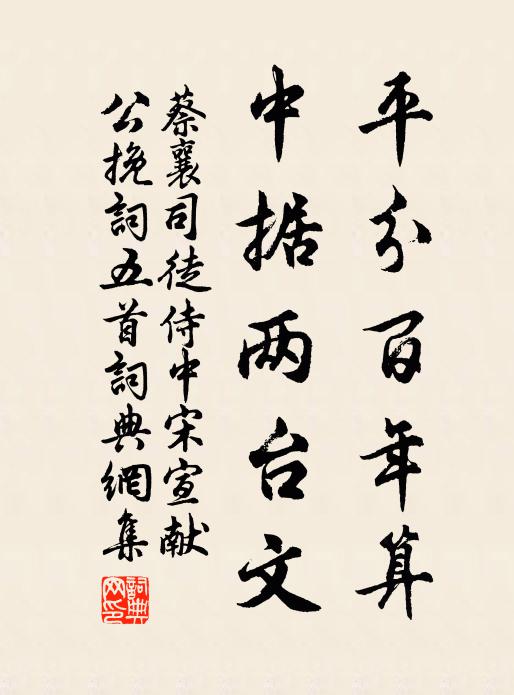 平分百年算
中据两台文
蔡襄司徒侍中宋宣献
公挽詞五首詞典網集
詞典网印